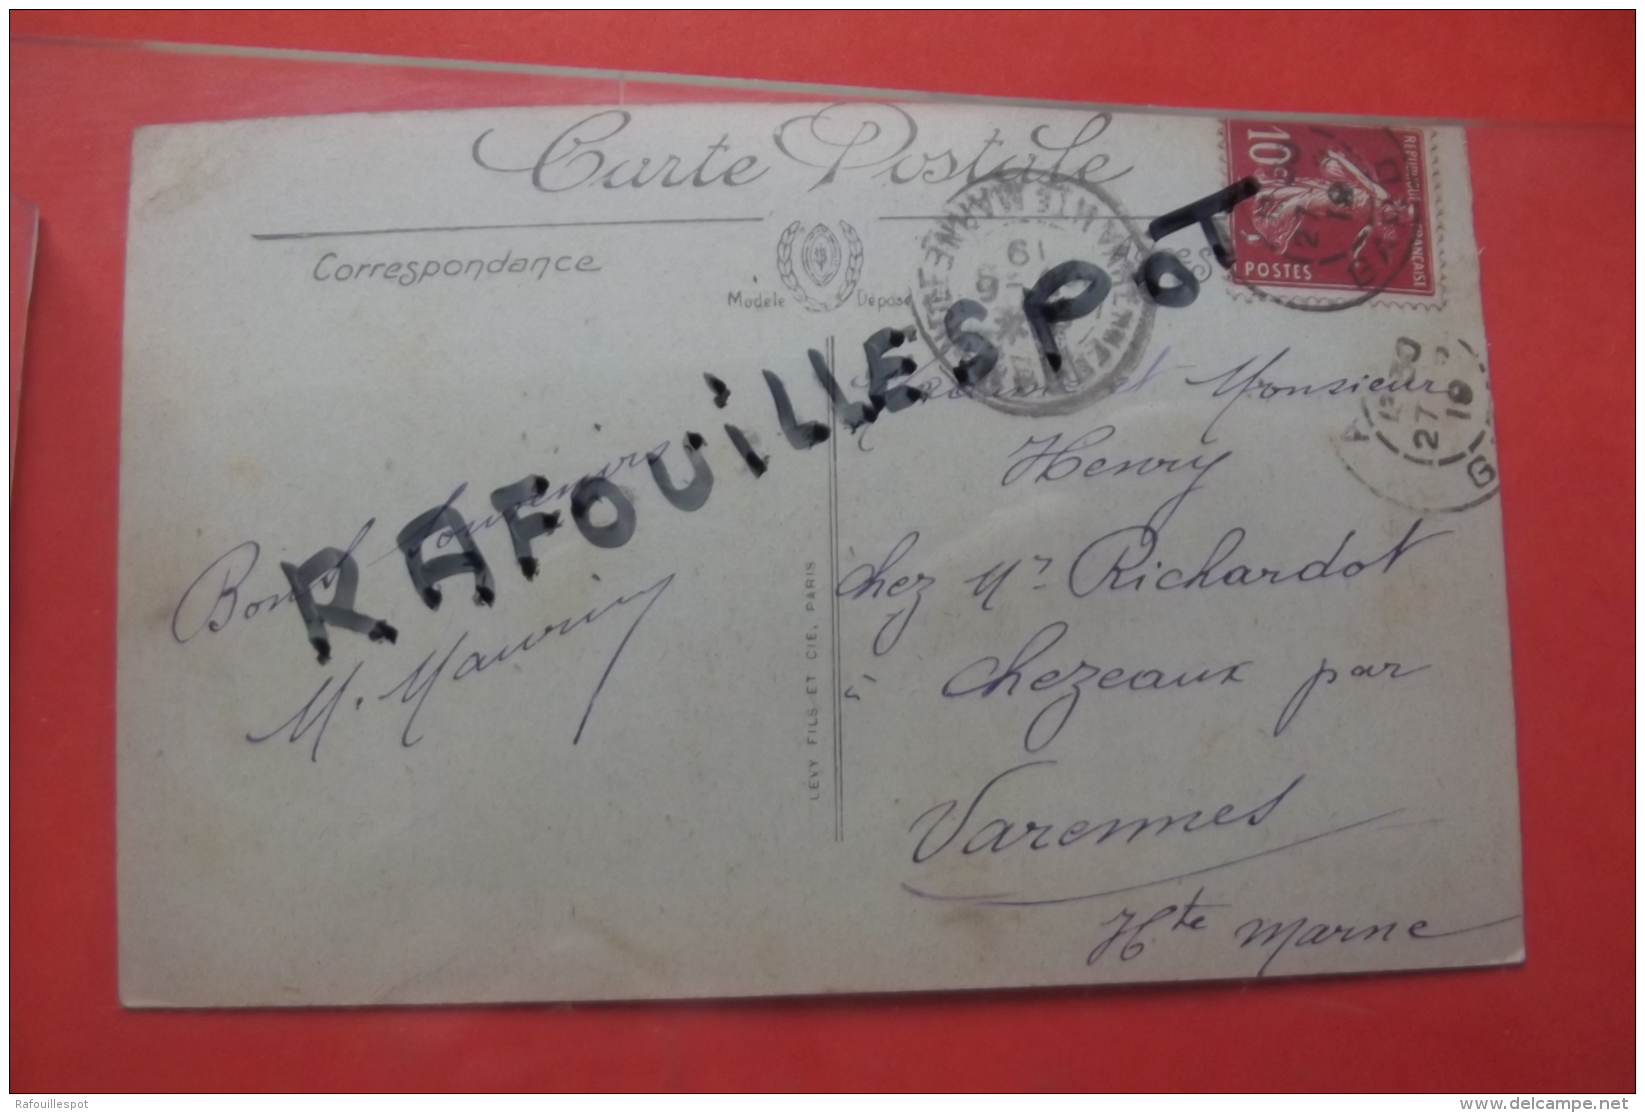 Carte Postale
Correspondance
Modèle Déposé
RAFOUILLESPOT
10
POSTES
27
19
Bons Souvenirs
LÉVY FILS ET CIE, PARIS
Madame et Monsieur
Henry
chez Mr Richardot
à Chezeaux par
Varennes
Hte Marne
Rafouillespot
www.delcampe.net